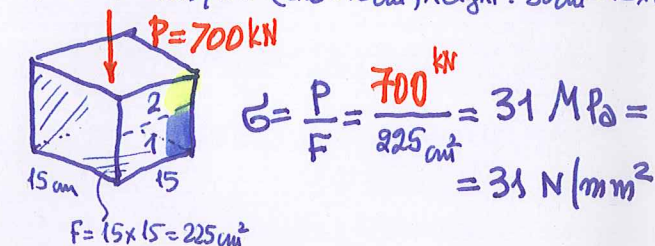 P=700kN
2
1
15 cm
15
F=15x15=225cm²
σ= P/F = 700 kN/225 cm² = 31 MPa =
= 31 N/mm²